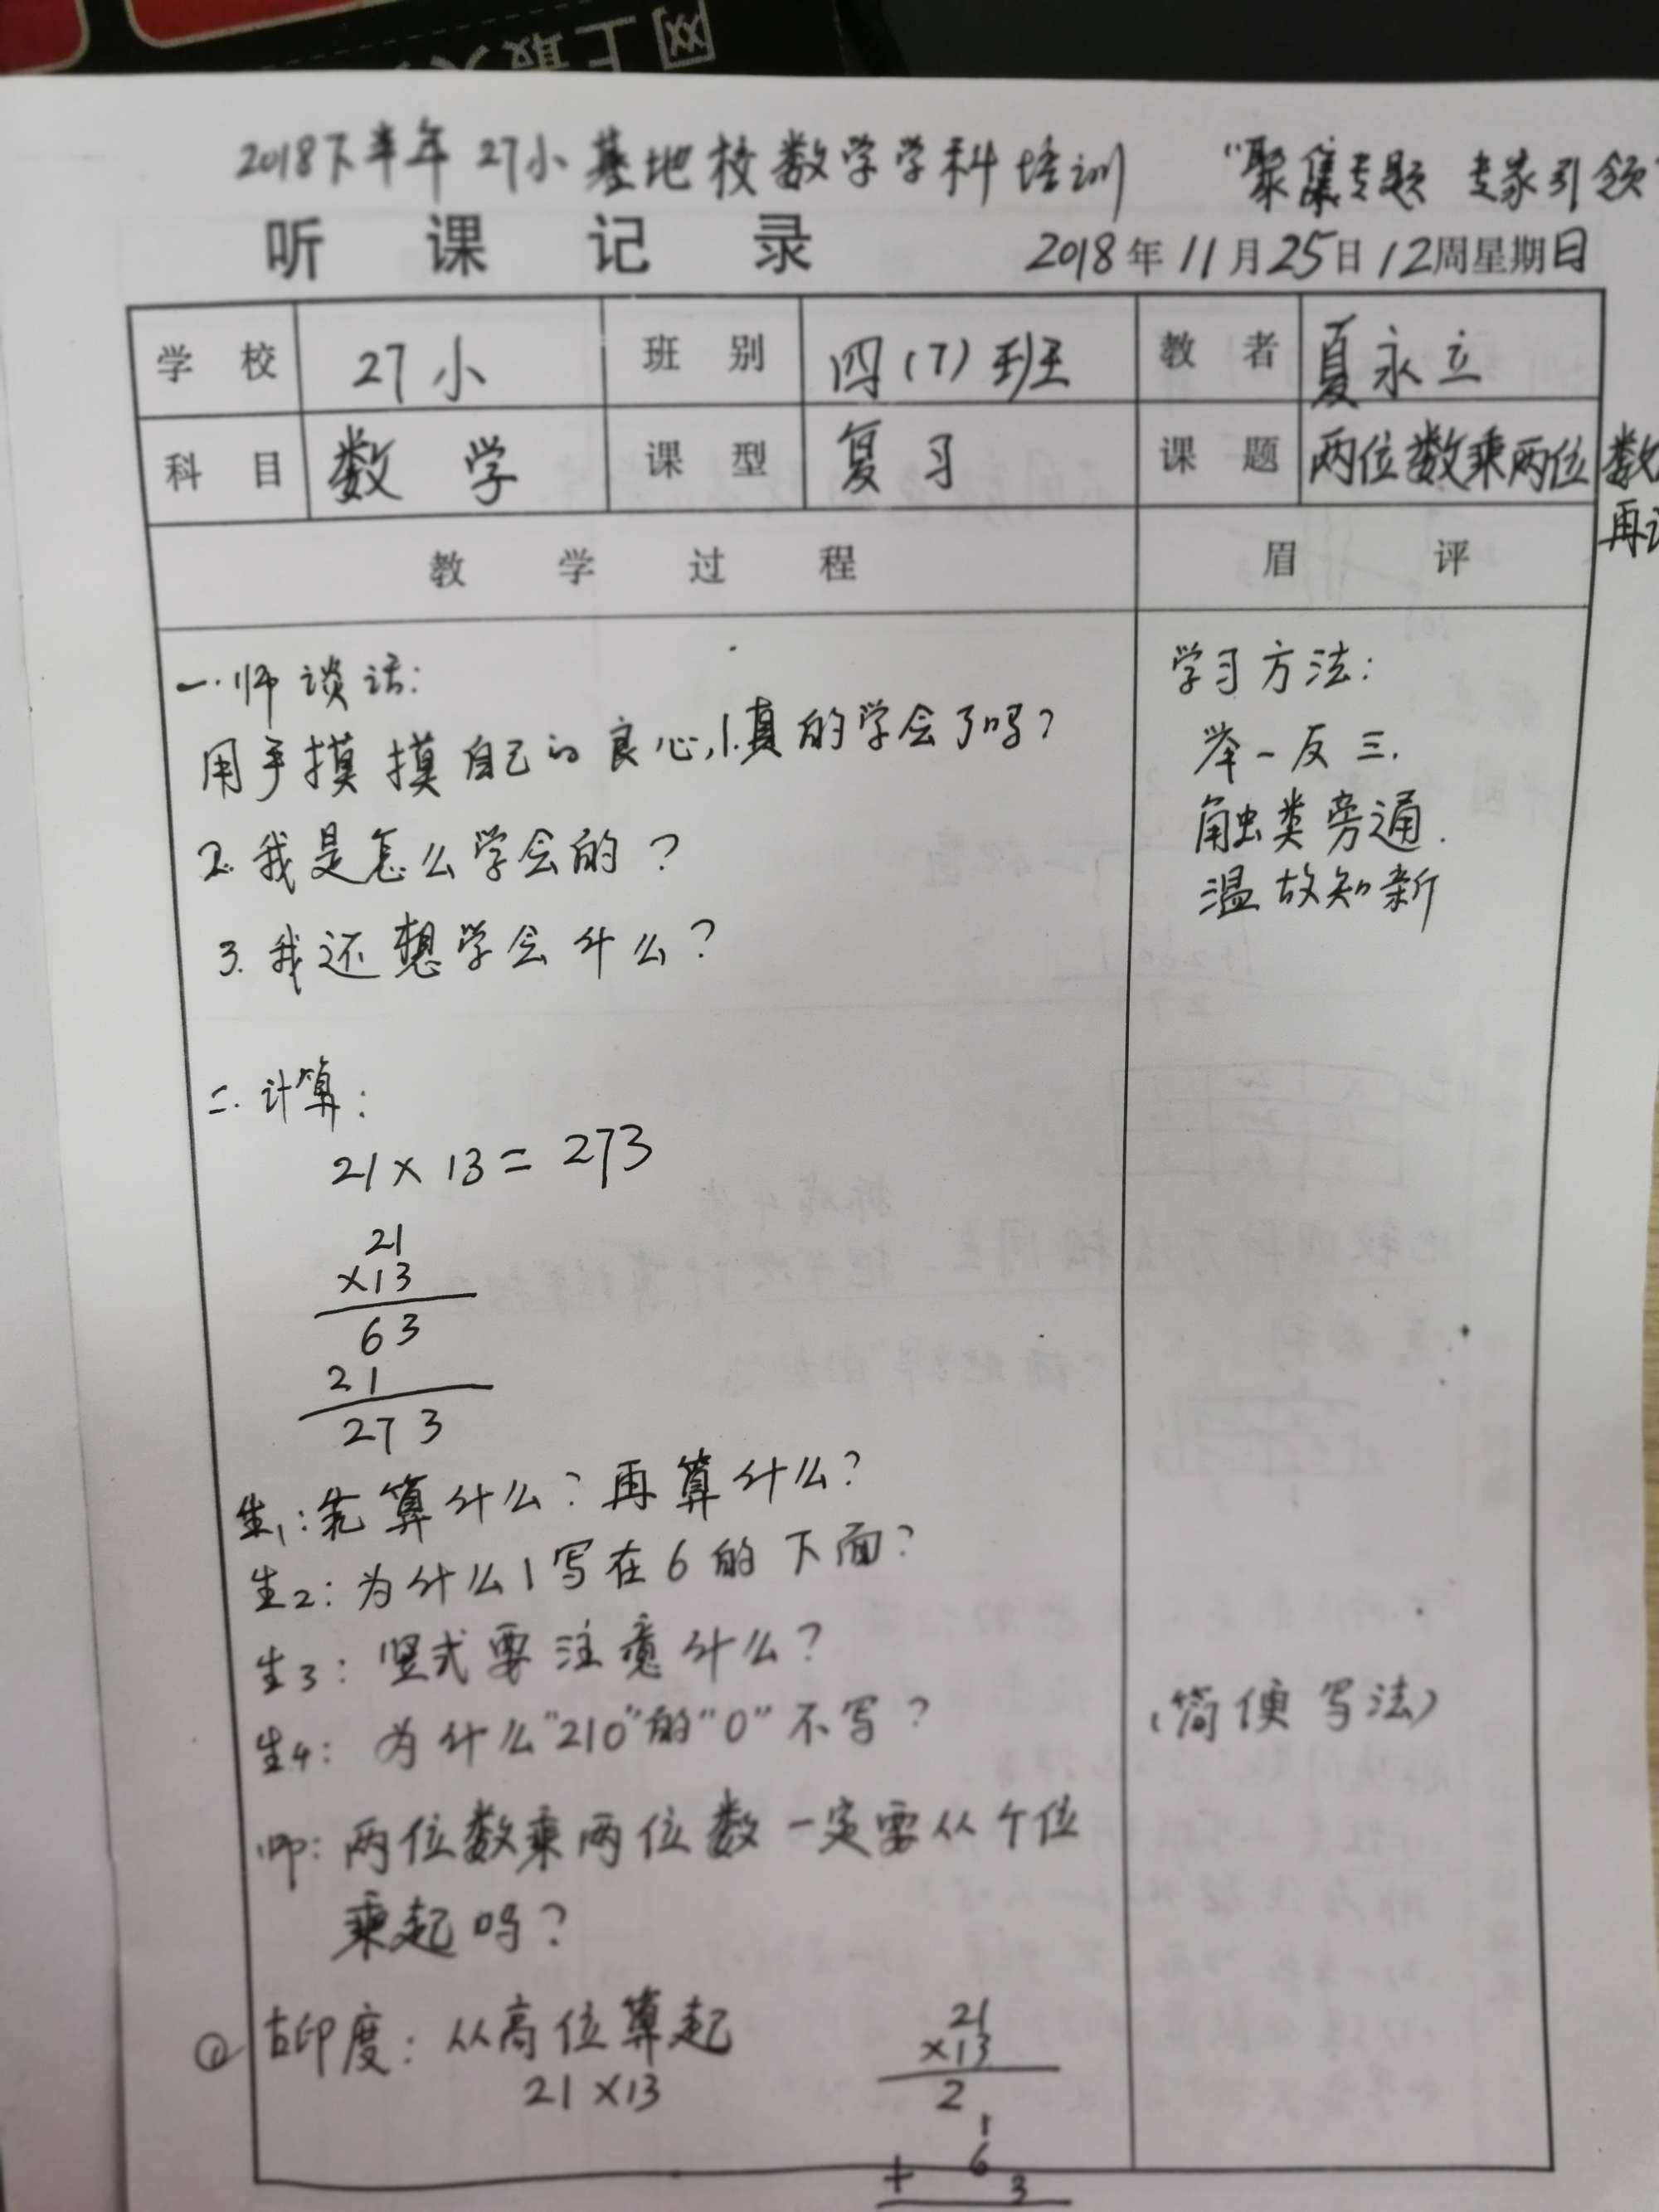 网上最大
2018下半年 27小基地校数学学科培训 “聚集专题 专家引领”
听课记录 2018年11月25日12周星期日
学校 27小 班别 四(7)班 教者 夏永立
科目 数学 课型 复习 课题 两位数乘两位数
再
教学过程 眉评
一.师谈话:
用手摸摸自己的良心,1.真的学会了吗?
2.我是怎么学会的?
3.我还想学会什么?
学习方法:
举一反三.
触类旁通.
温故知新
二.计算:
21×13=273
21
×13
63
21
273
生1:先算什么?再算什么?
生2:为什么1写在6的下面?
生3:竖式要注意什么?
生4:为什么“210”的“0”不写? (简便写法)
师:两位数乘两位数一定要从个位
乘起吗?
① 古印度:从高位算起
21×13
21
×13
2
1
6
+ 3